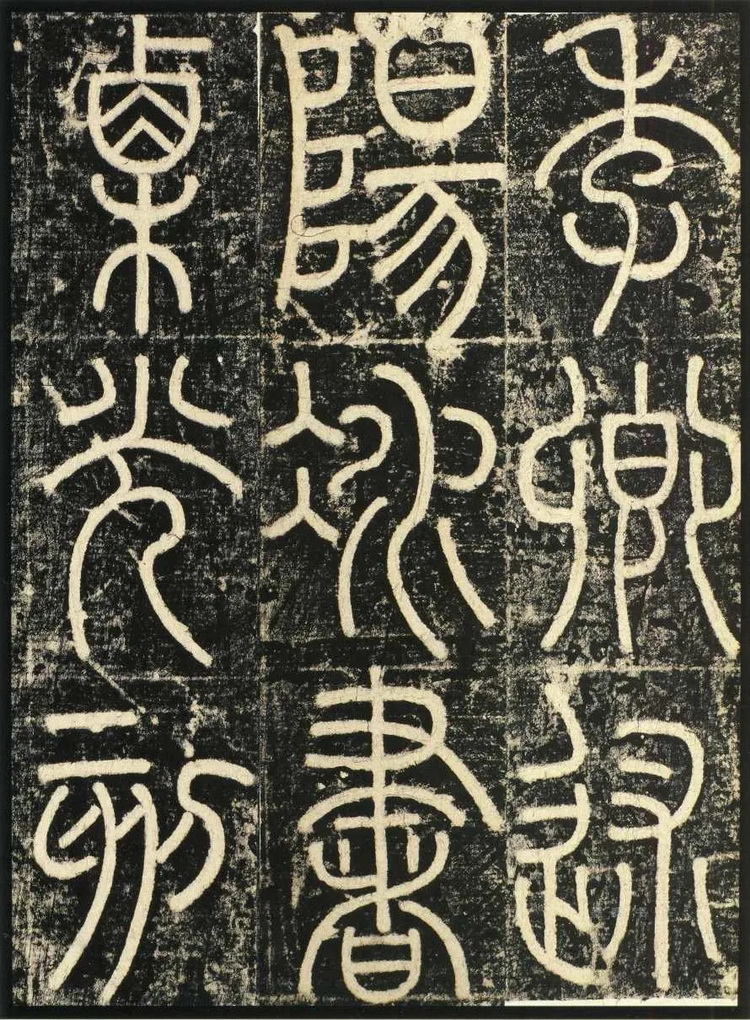 季卿述
陽冰書
栗光刻